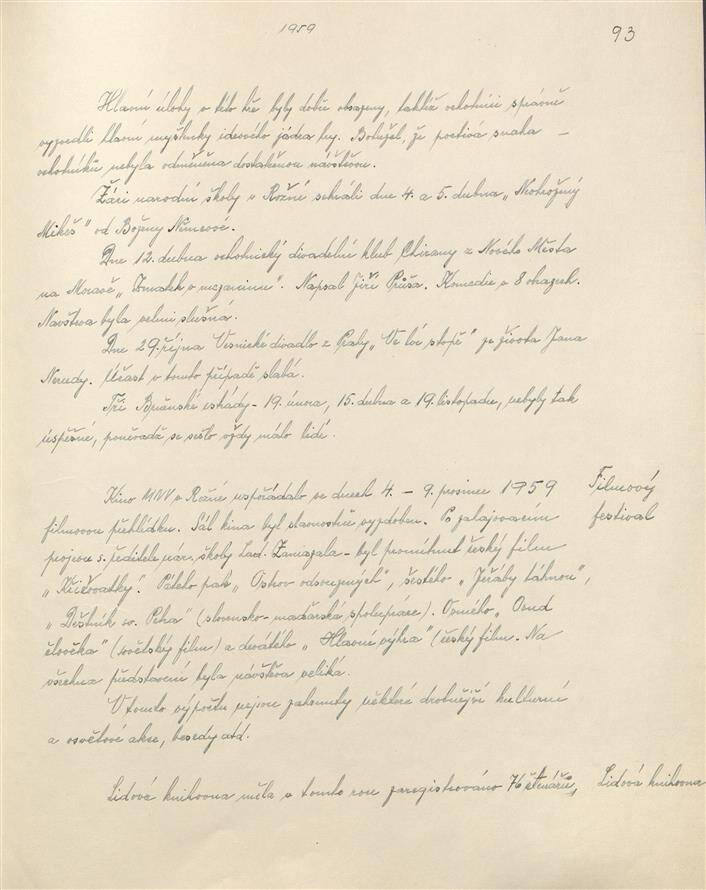 1959
93
Hlavní úlohy v této hře byly dobře obsazeny, taktéž ochotníci správně
vyzvedli hlavní myšlenky ideového jádra hry. Bohužel, že poctivá snaha –
ochotníků nebyla odměněna dostatečnou návštěvou.
Žáci národní školy v Rožné sehráli dne 4. a 5. dubna „Neohrožený
Mikeš" od Boženy Němcové.
Dne 12. dubna ochotnický divadelní klub Chirany z Nového Města
na Moravě „Zmatek v mezaninu". Napsal Jiří Průša. Komedie v 8 obrazech.
Návštěva byla velmi slušná.
Dne 29. října Vesnické divadlo z Prahy „Ve lví stopě" ze života Jana
Nerudy. Účast v tomto případě slabá.
Tři Brněnské estrády – 19. února, 15. dubna a 19. listopadu, nebyly tak
úspěšné, poněvadž se sešlo vždy málo lidí.
Kino MNV v Rožné uspořádalo ve dnech 4. – 9. prosince 1959
Filmový
festival
filmovou přehlídku. Sál kina byl slavnostně vyzdoben. Po zahajovacím
projevu s. ředitele nár. školy Lad. Zamazala – byl promítnut český film
„Křižovatky". Pátého pak „Ostrov odsouzených", šestého „Jeřáby táhnou",
„Deštník sv. Petra" (slovensko-maďarská spolupráce). Osmého „Osud
člověka" (sovětský film) a devátého „Hlavní výhra" (český film. Na
všechna představení byla návštěva veliká.
V tomto výpočtu nejsou zahrnuty některé drobnější kulturní
a osvětové akce, besedy atd.
Lidová knihovna měla v tomto roce zaregistrováno 76 čtenářů,
Lidová knihovna